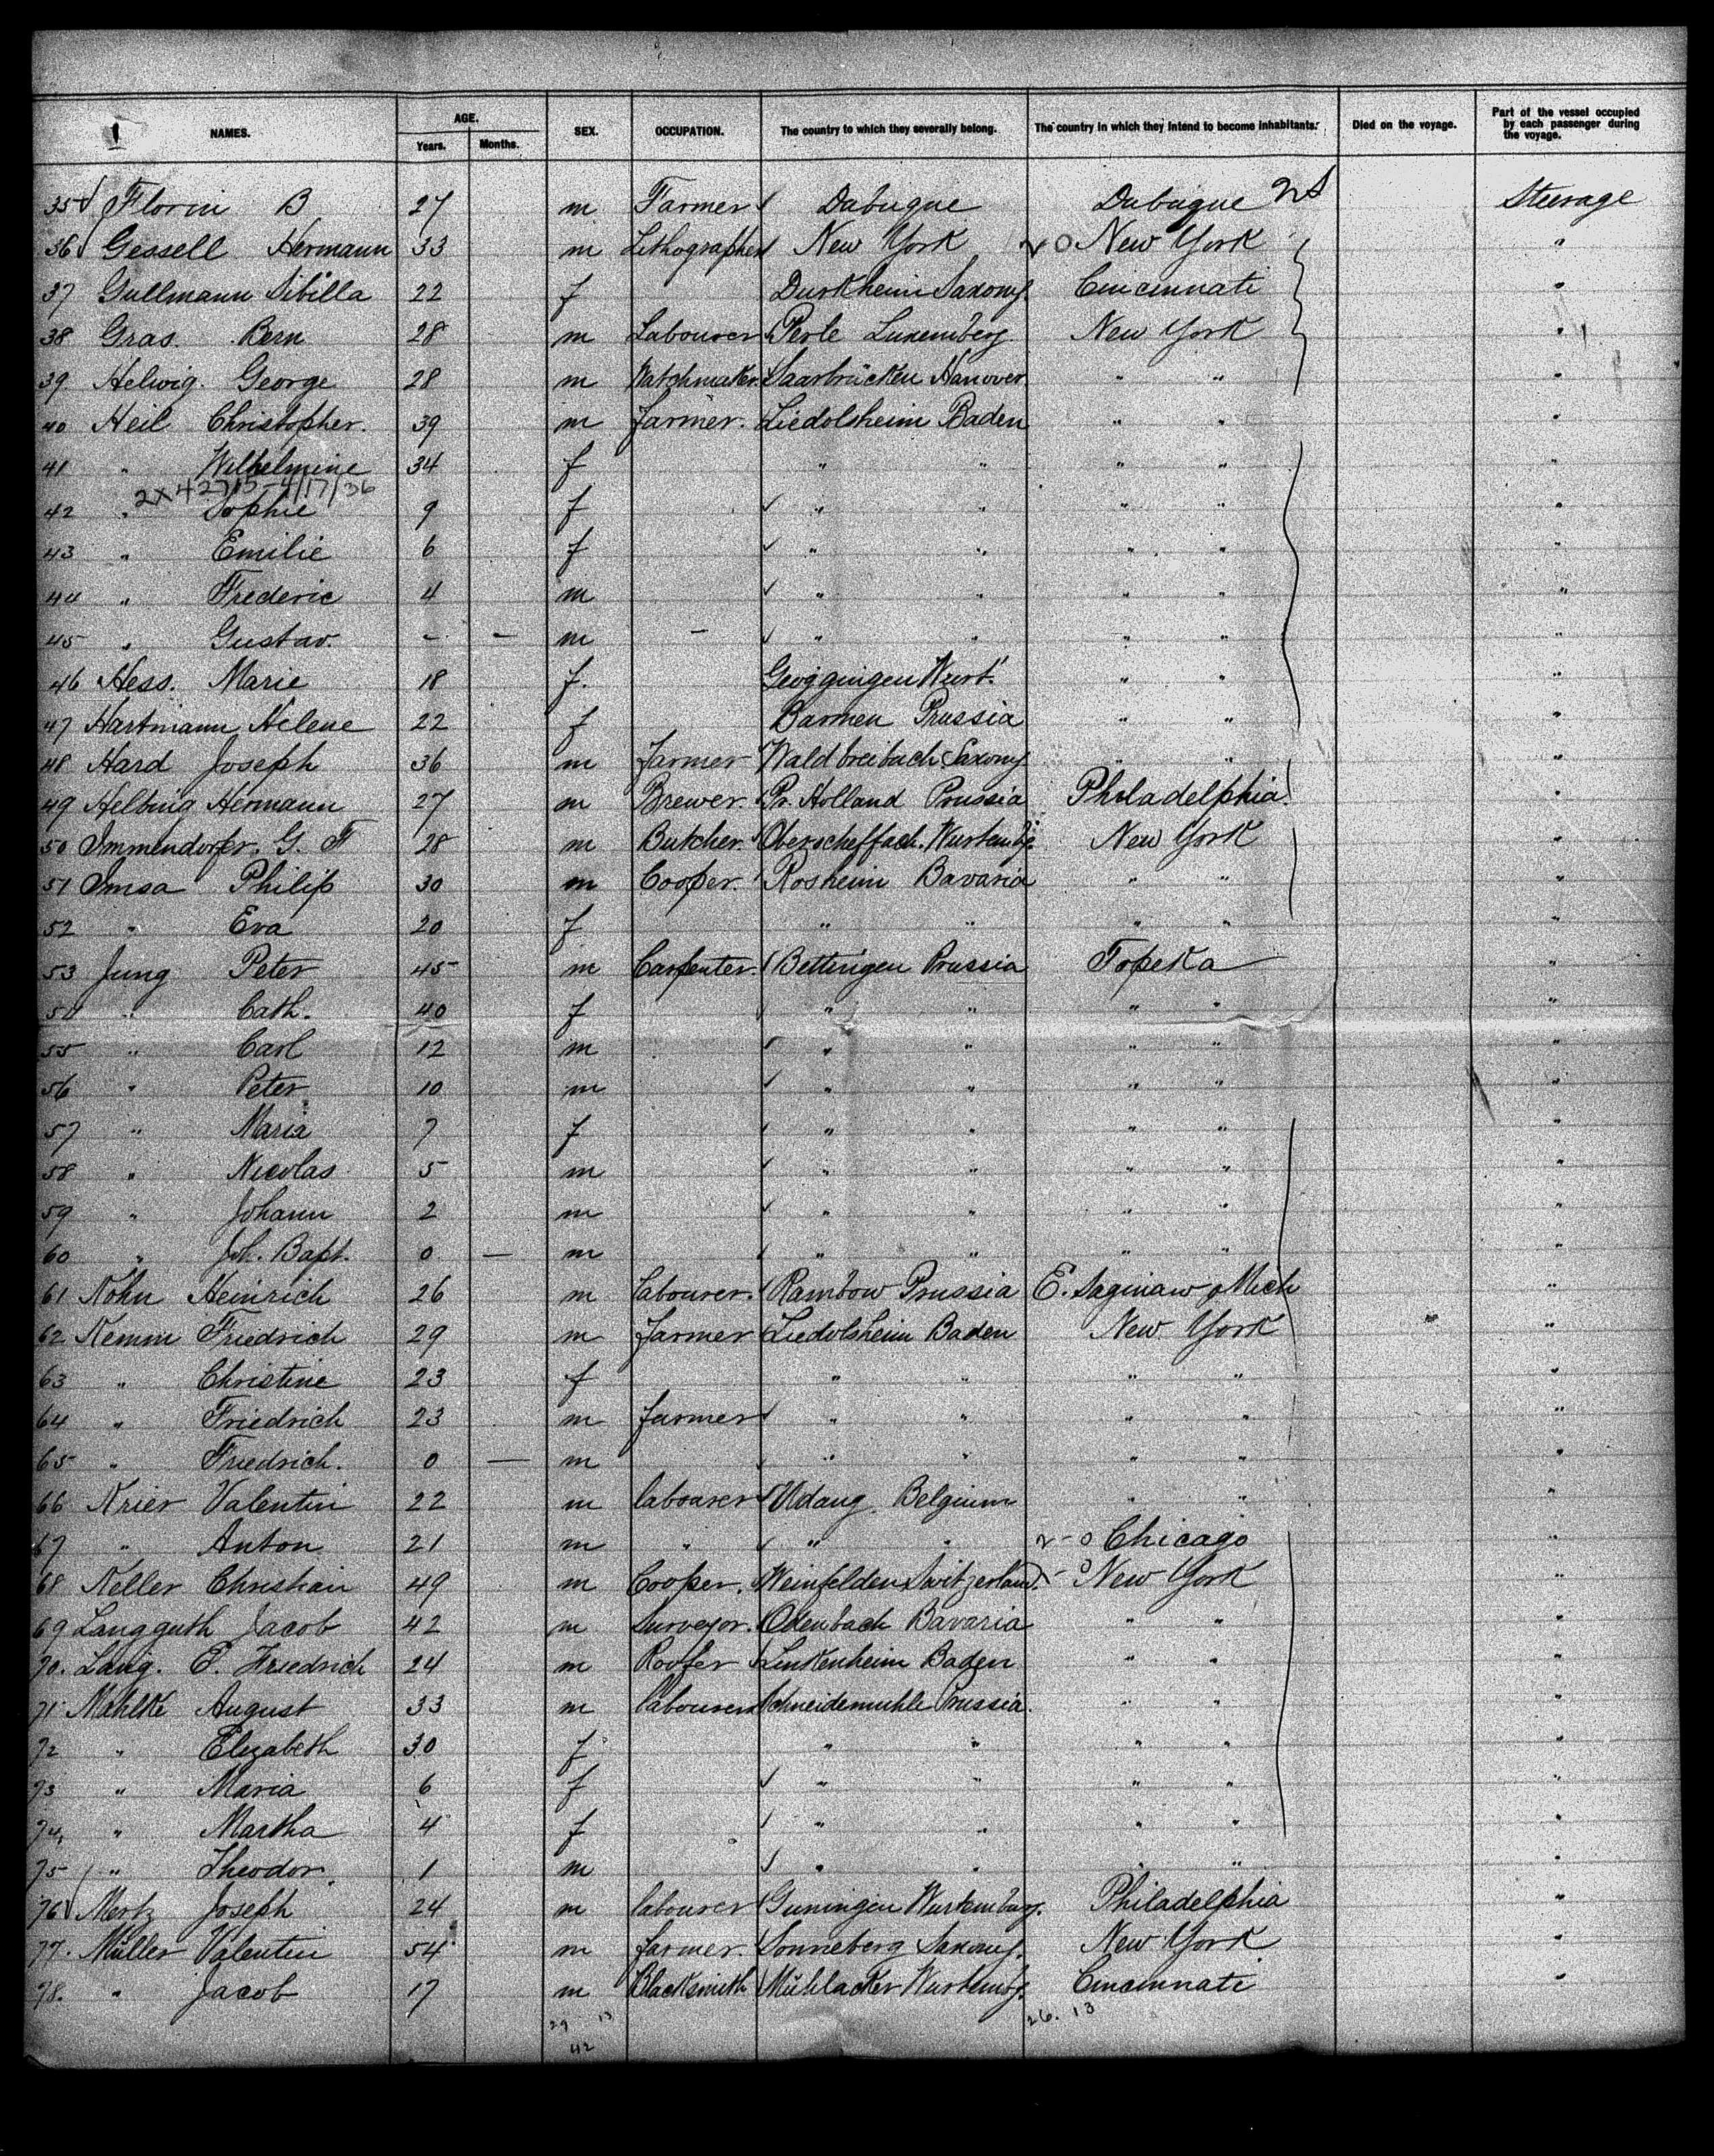 NAMES. AGE. Years. Months. SEX. OCCUPATION. The country to which they severally belong. The country in which they intend to become inhabitants. Died on the voyage. Part of the vessel occupied by each passenger during the voyage.
35 Florin B 27 m Farmer Dubuque Dubuque Steerage
36 Gessell Hermann 33 m Lithographer New York 20 New York "
37 Gullmann Sibilla 22 f Durkheim Saxony. Cincinnati "
38 Gras. Bern 28 m Labourer Perle Luxemberg. New York "
39 Helwig. George 28 m Watchmaker. Saarbrücken Hanover. " " "
40 Heil Christopher. 39 m farmer. Liedolsheim Baden " " "
41 " Wilhelmine 34 f " " " " "
2x42715-4/17/36
42 " Sophie 9 f " " " " "
43 " Emilie 6 f " " " " "
44 " Frederic 4 m " " " " "
45 " Gustav. - - m - " " " " "
46 Hess. Marie 18 f. Geoggingen Wurt. " " "
47 Hartmann Helene 22 f Barmen Prussia " " "
48 Hard Joseph 36 m farmer Waldbreibach Saxony " " "
49 Helbing Hermann 27 m Brewer. Pr. Holland Prussia Philadelphia. "
50 Immendorfer. G. F 28 m Butcher. Oberscheffach. Wurtembg. New York "
51 Imsa Philip 30 m Cooper. Rosheim Bavaria " " "
52 " Eva 20 f " " " " "
53 Jung Peter 45 m Carpenter. Bettingen Prussia Topeka "
54 " Cath. 40 f " " " " "
55 " Carl 12 m " " " " "
56 " Peter 10 m " " " " "
57 " Maria 7 f " " " " "
58 " Nicolas 5 m " " " " "
59 " Johann 2 m " " " " "
60 " Joh. Bapt. 0 — m " " " " "
61 Kohn Heinrich 26 m labourer. Rambow Prussia E. Saginaw Mich "
62 Kemm Friedrich 29 m farmer Liedolsheim Baden New York "
63 " Christine 23 f " " " " "
64 " Friedrich 23 m farmer " " " " "
65 " Friedrich. 0 — m " " " " "
66 Krier Valentin 22 m labourer Udang Belgium " " "
67 " Anton 21 m " " " 2-0 Chicago "
68 Keller Christian 49 m Cooper. Weinfelden Switzerland. New York "
69 Langguth Jacob 42 m Surveyor. Odenbach Bavaria " " "
70. Lang. E. Friedrich 24 m Roofer Linkenheim Baden " " "
71 Mahlke August 33 m labourer Schneidemuhle Prussia. " " "
72 " Elizabeth 30 f " " " " "
73 " Maria 6 f " " " " "
74. " Martha 4 f " " " " "
75 " Theodor. 1 m " " " " "
76 Mertz Joseph 24 m labourer Guningen Wurtemburg. Philadelphia "
77. Müller Valentin 54 m farmer. Sonneberg Saxony. New York "
78. " Jacob 17 m Blacksmith Mühlacker Wurtembg. Cincinnati "
29 13 26. 13
42